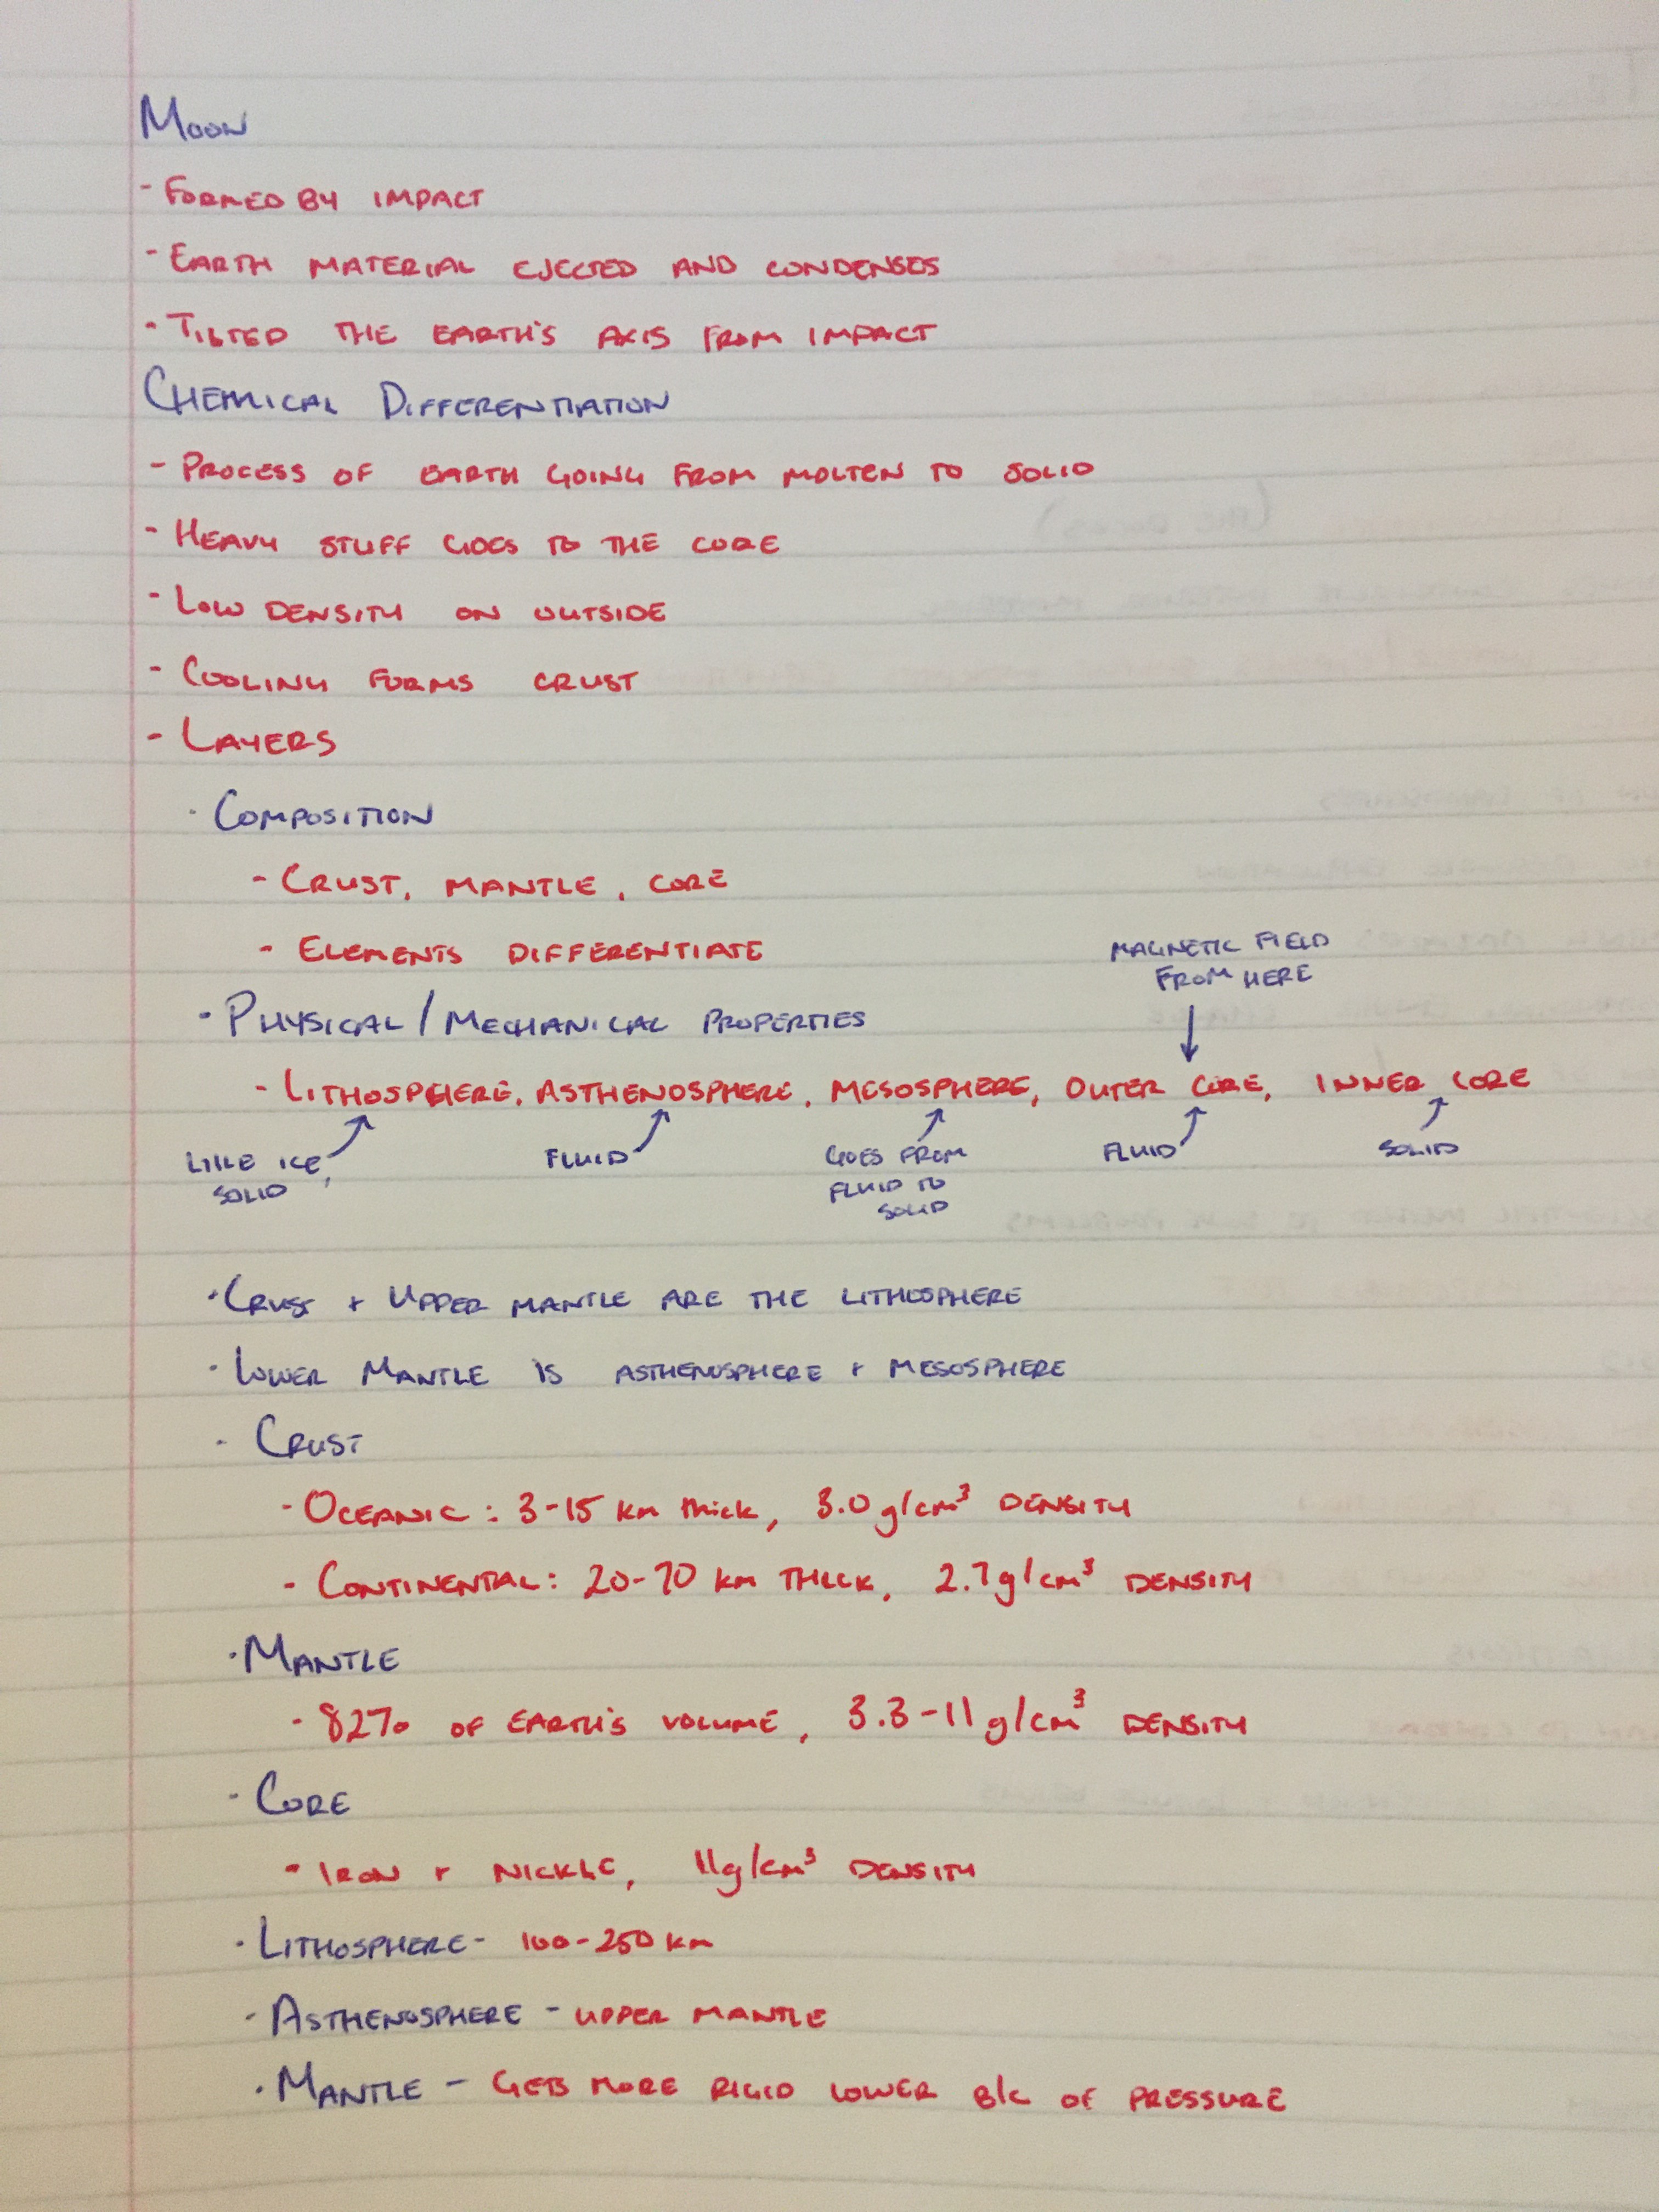 Moon
- Formed by impact
- Earth material ejected and condenses
- Tilted the Earth's axis from impact
Chemical Differentiation
- Process of Earth going from molten to solid
- Heavy stuff goes to the core
- Low density on outside
- Cooling forms crust
- Layers
· Composition
- Crust, mantle, core
- Elements differentiate
Magnetic field
from here
· Physical/Mechanical properties
- Lithosphere, asthenosphere, mesosphere, outer core, inner core
Like ice,
solid
Fluid
Goes from
fluid to
solid
Fluid
Solid
· Crust + Upper mantle are the lithosphere
· Lower Mantle is asthenosphere + mesosphere
· Crust
- Oceanic: 3-15 km thick, 3.0 g/cm³ density
- Continental: 20-70 km thick, 2.7 g/cm³ density
· Mantle
- 82% of Earth's volume, 3.3-11 g/cm³ density
· Core
- Iron + nickle, 11g/cm³ density
· Lithosphere - 100-250 km
· Asthenosphere - upper mantle
· Mantle - Gets more rigid lower b/c of pressure